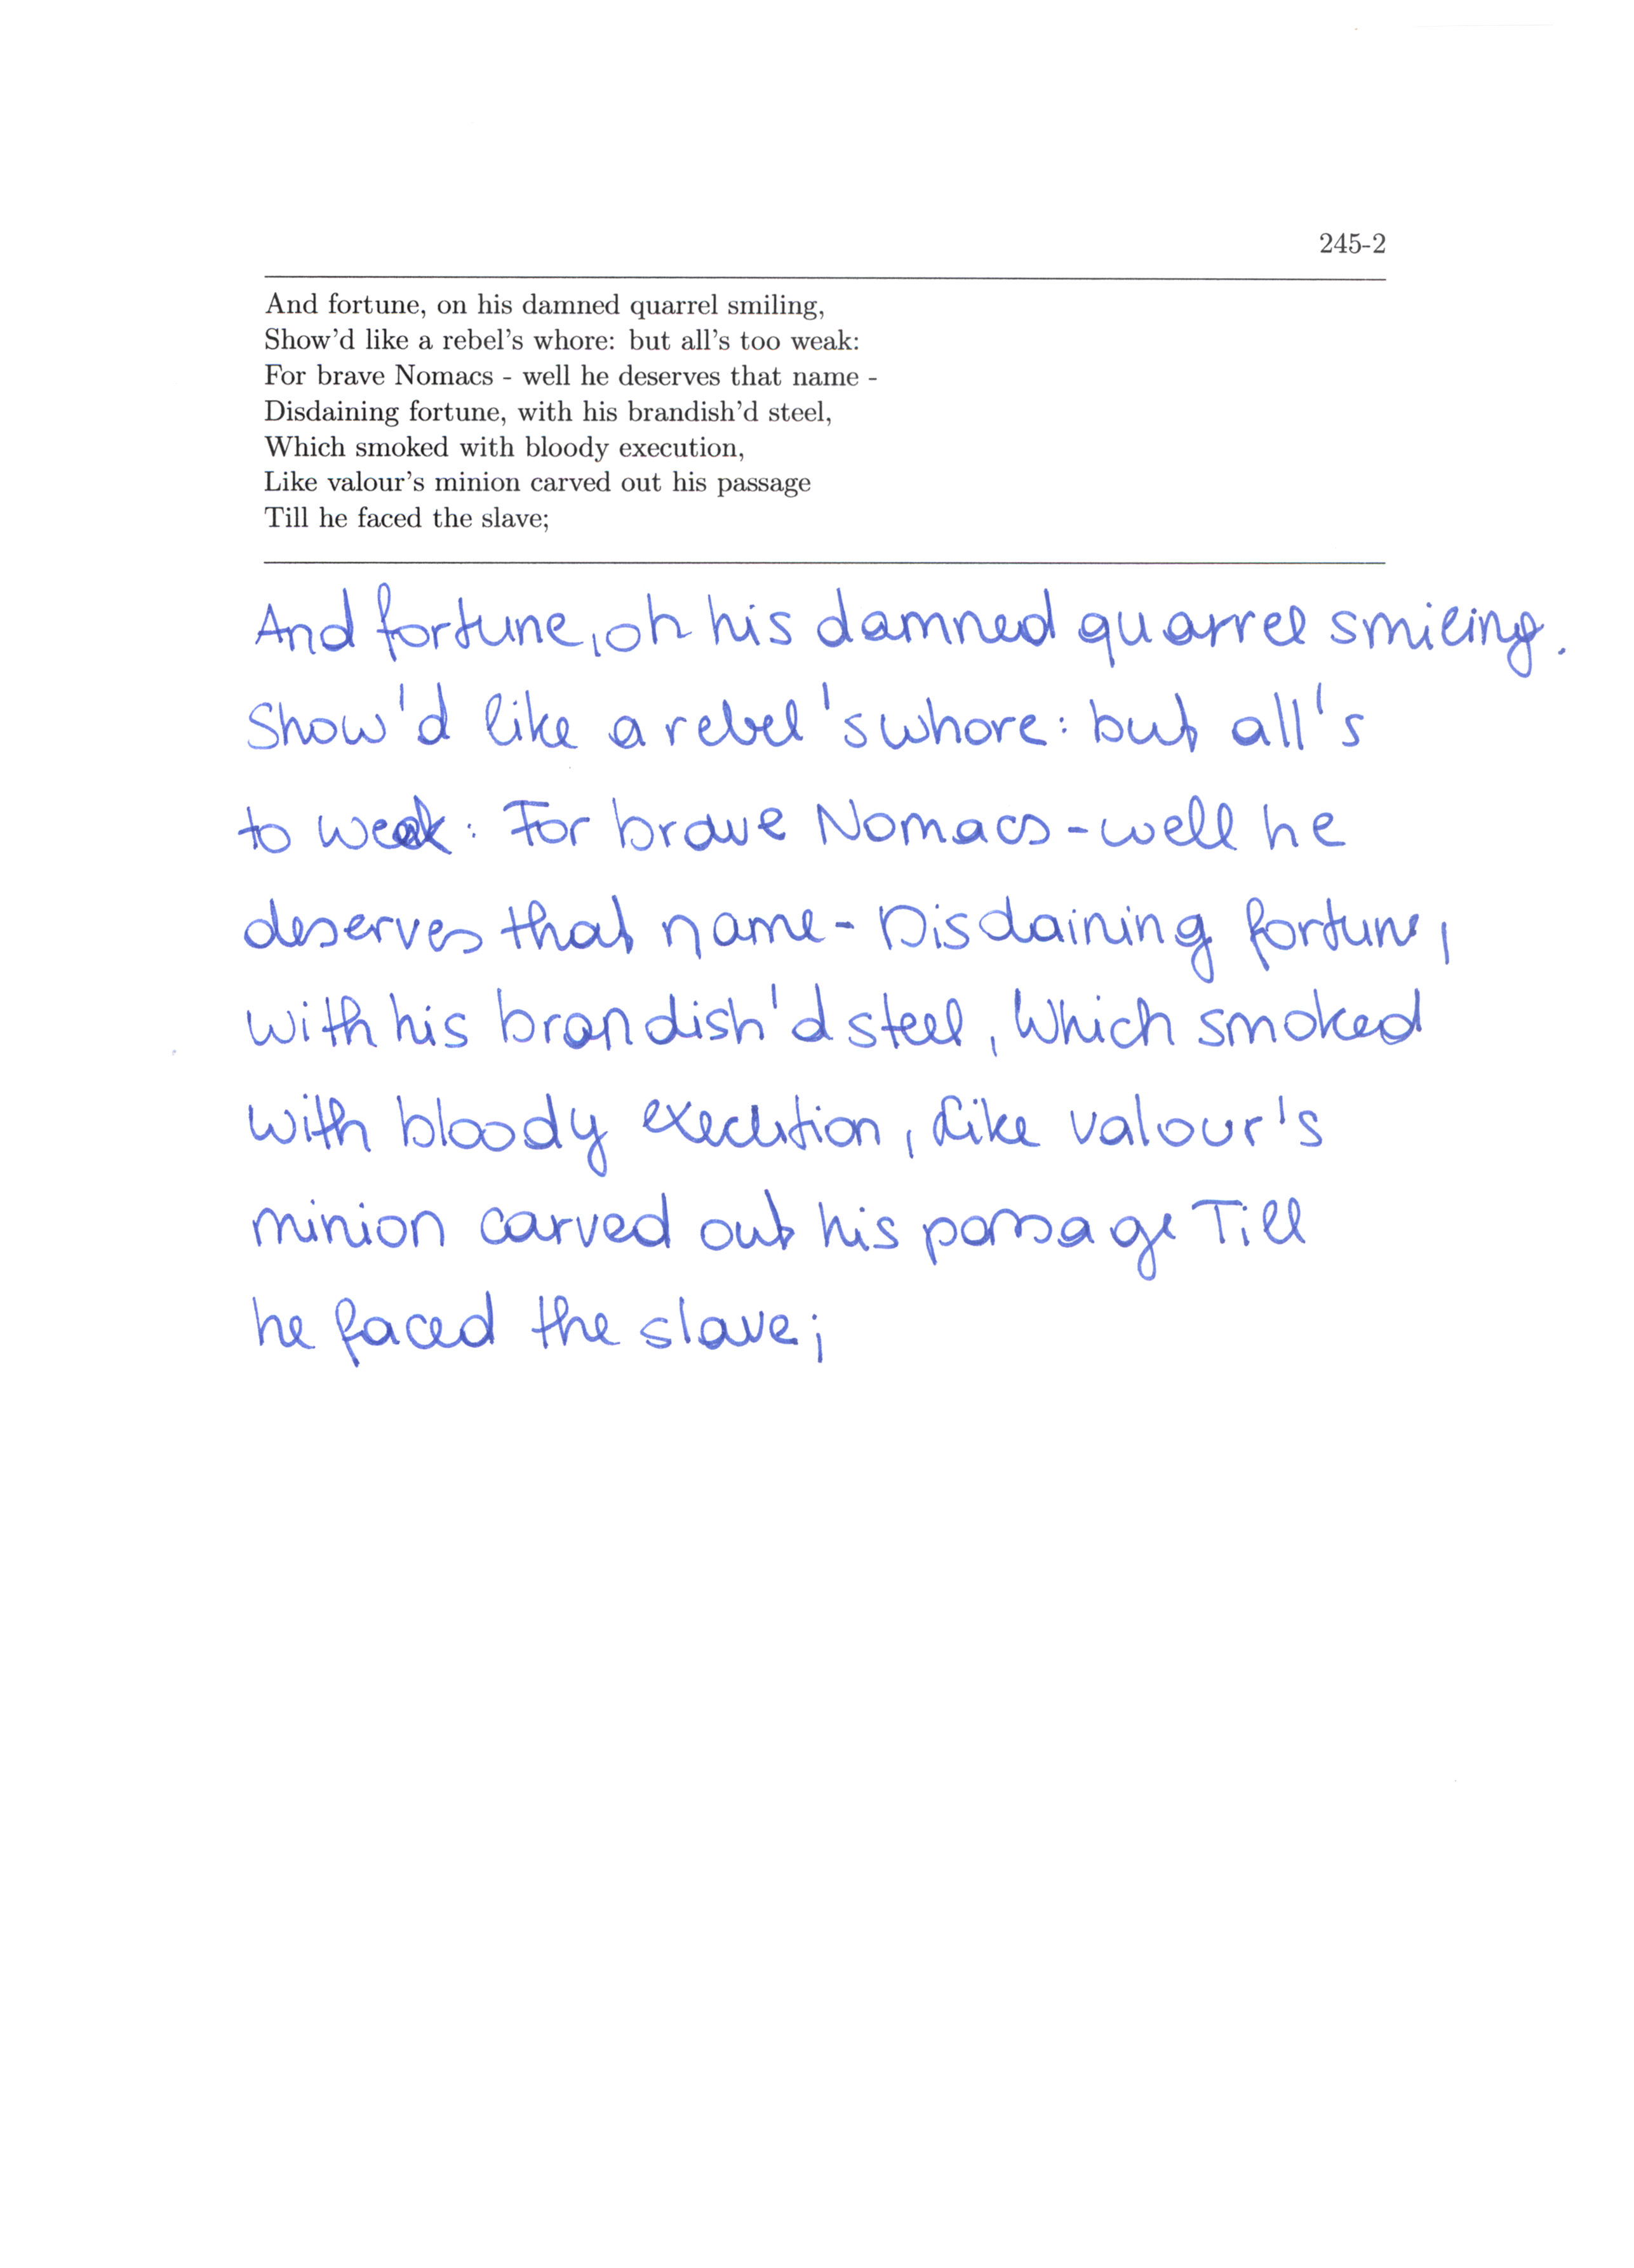 245-2
And fortune, on his damned quarrel smiling,
Show'd like a rebel's whore: but all's too weak:
For brave Nomacs - well he deserves that name -
Disdaining fortune, with his brandish'd steel,
Which smoked with bloody execution,
Like valour's minion carved out his passage
Till he faced the slave;
And fortune, oh his damned quarrel smiling.
Show'd like a rebel's whore: but all's
to weak: For brave Nomacs - well he
deserves that name - Disdaining fortune,
with his brandish'd steel, Which smoked
with bloody execution, Like valour's
minion carved out his passage Till
he faced the slave;